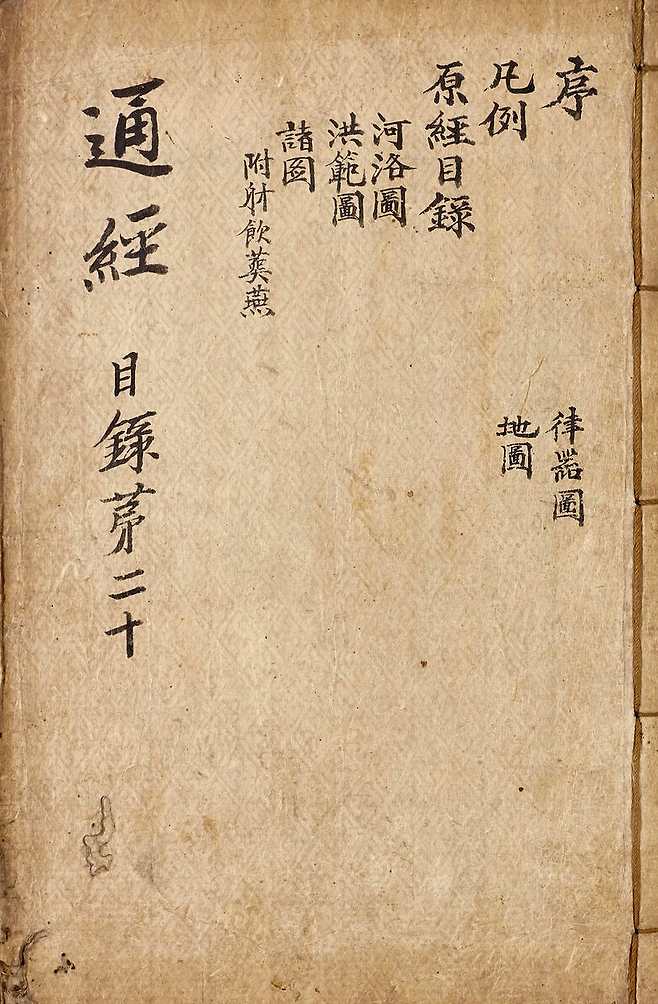 序
凡例
原經目錄
河洛圖
洪範圖
諸图
附射飲冀燕
律器圖
地圖
通經 目錄苐二十